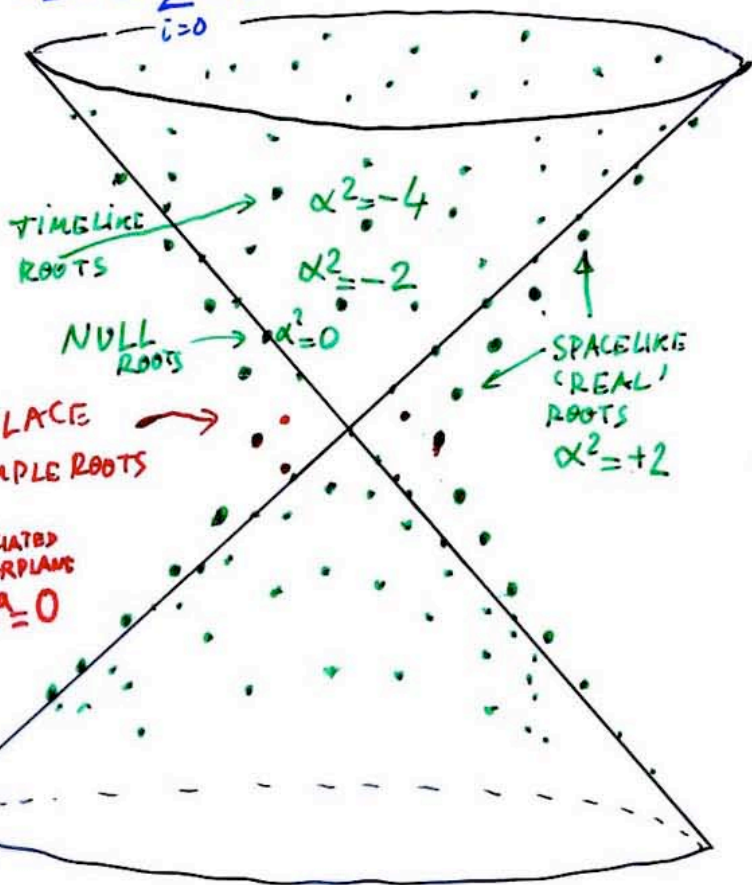 i=0
α²=-4
TIMELIKE
ROOTS
α²=-2
NULL
ROOTS
α²=0
SPACELIKE
'REAL'
ROOTS
α²=+2
LACE
MPLE ROOTS
RPLANE
=0